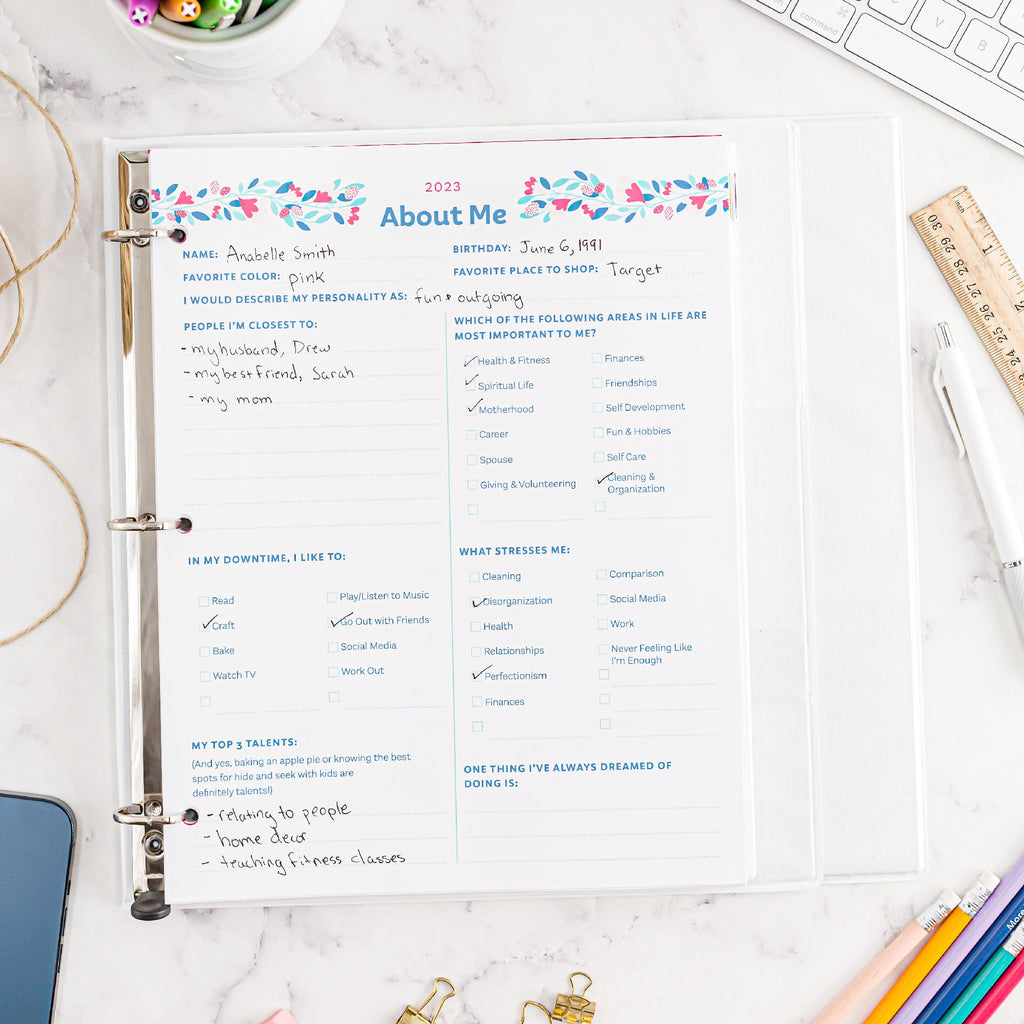 2023
About Me
NAME: Anabelle Smith
BIRTHDAY: June 6, 1991
FAVORITE COLOR: pink
FAVORITE PLACE TO SHOP: Target
I WOULD DESCRIBE MY PERSONALITY AS: fun + outgoing
PEOPLE I'M CLOSEST TO:
- my husband, Drew
- my best friend, Sarah
- my mom
WHICH OF THE FOLLOWING AREAS IN LIFE ARE
MOST IMPORTANT TO ME?
Health & Fitness
Finances
Spiritual Life
Friendships
Motherhood
Self Development
Career
Fun & Hobbies
Spouse
Self Care
Giving & Volunteering
Cleaning &
Organization
IN MY DOWNTIME, I LIKE TO:
Read
Play/Listen to Music
Craft
Go Out with Friends
Bake
Social Media
Watch TV
Work Out
WHAT STRESSES ME:
Cleaning
Comparison
Disorganization
Social Media
Health
Work
Relationships
Never Feeling Like
I'm Enough
Perfectionism
Finances
MY TOP 3 TALENTS:
(And yes, baking an apple pie or knowing the best
spots for hide and seek with kids are
definitely talents!)
- relating to people
- home decor
- teaching fitness classes
ONE THING I'VE ALWAYS DREAMED OF
DOING IS:
command
V
B
inch
1
30 29 28 27 26 25 24